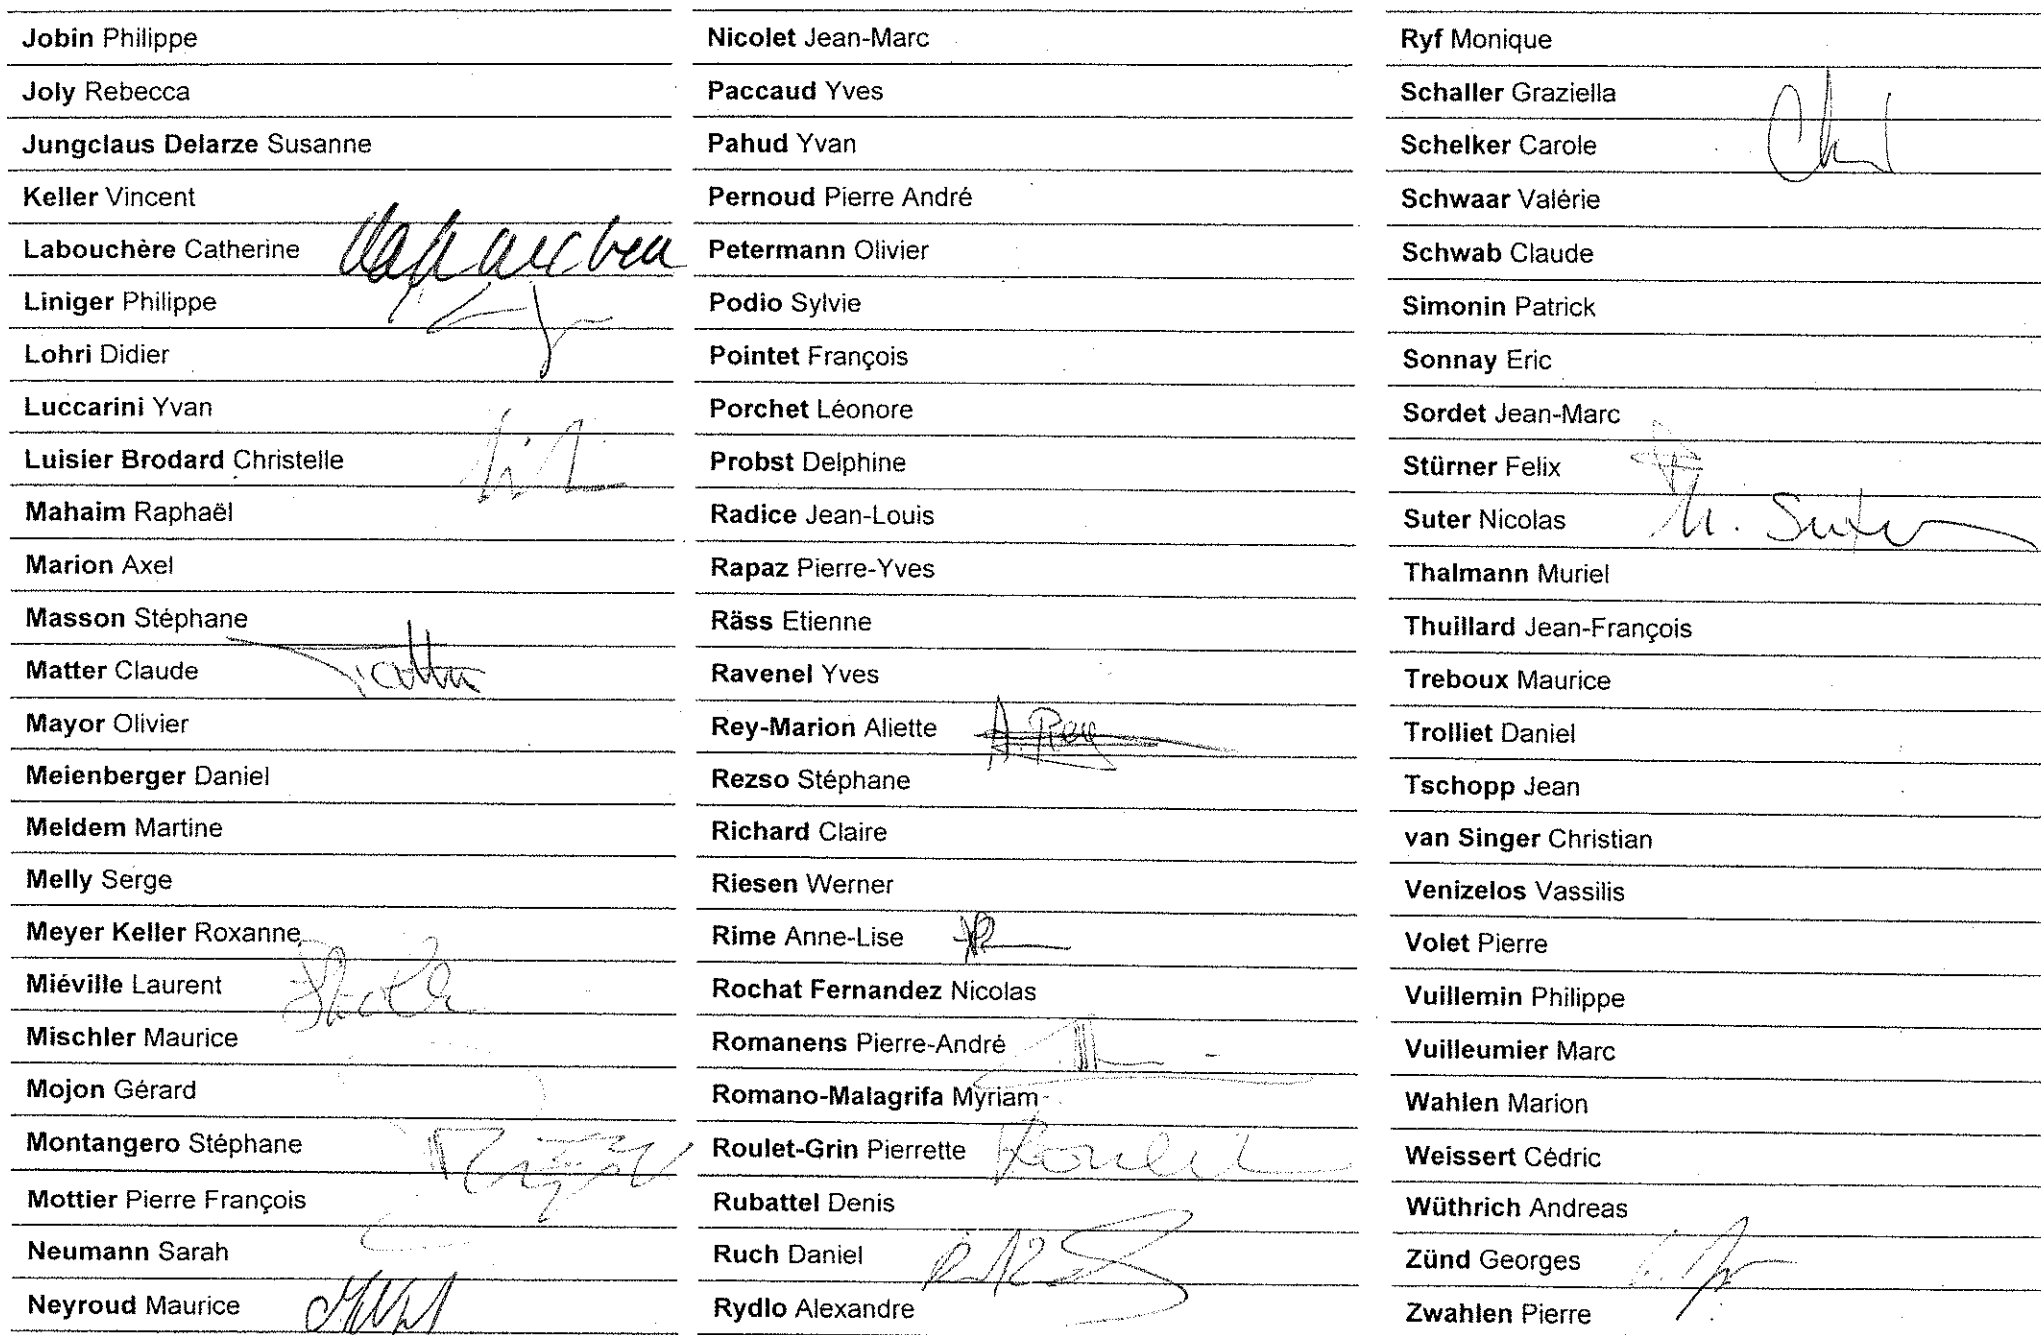 Jobin Philippe
Joly Rebecca
Jungclaus Delarze Susanne
Keller Vincent
Labouchère Catherine
Liniger Philippe
Lohri Didier
Luccarini Yvan
Luisier Brodard Christelle
Mahaim Raphaël
Marion Axel
Masson Stéphane
Matter Claude
Mayor Olivier
Meienberger Daniel
Meldem Martine
Melly Serge
Meyer Keller Roxanne
Miéville Laurent
Mischler Maurice
Mojon Gérard
Montangero Stéphane
Mottier Pierre François
Neumann Sarah
Neyroud Maurice
Nicolet Jean-Marc
Paccaud Yves
Pahud Yvan
Pernoud Pierre André
Petermann Olivier
Podio Sylvie
Pointet François
Porchet Léonore
Probst Delphine
Radice Jean-Louis
Rapaz Pierre-Yves
Räss Etienne
Ravenel Yves
Rey-Marion Aliette A. Rey
Rezso Stéphane
Richard Claire
Riesen Werner
Rime Anne-Lise
Rochat Fernandez Nicolas
Romanens Pierre-André
Romano-Malagrifa Myriam
Roulet-Grin Pierrette
Rubattel Denis
Ruch Daniel
Rydlo Alexandre
Ryf Monique
Schaller Graziella
Schelker Carole
Schwaar Valérie
Schwab Claude
Simonin Patrick
Sonnay Eric
Sordet Jean-Marc
Stürner Felix
Suter Nicolas N. Suter
Thalmann Muriel
Thuillard Jean-François
Treboux Maurice
Trolliet Daniel
Tschopp Jean
van Singer Christian
Venizelos Vassilis
Volet Pierre
Vuillemin Philippe
Vuilleumier Marc
Wahlen Marion
Weissert Cédric
Wüthrich Andreas
Zünd Georges
Zwahlen Pierre